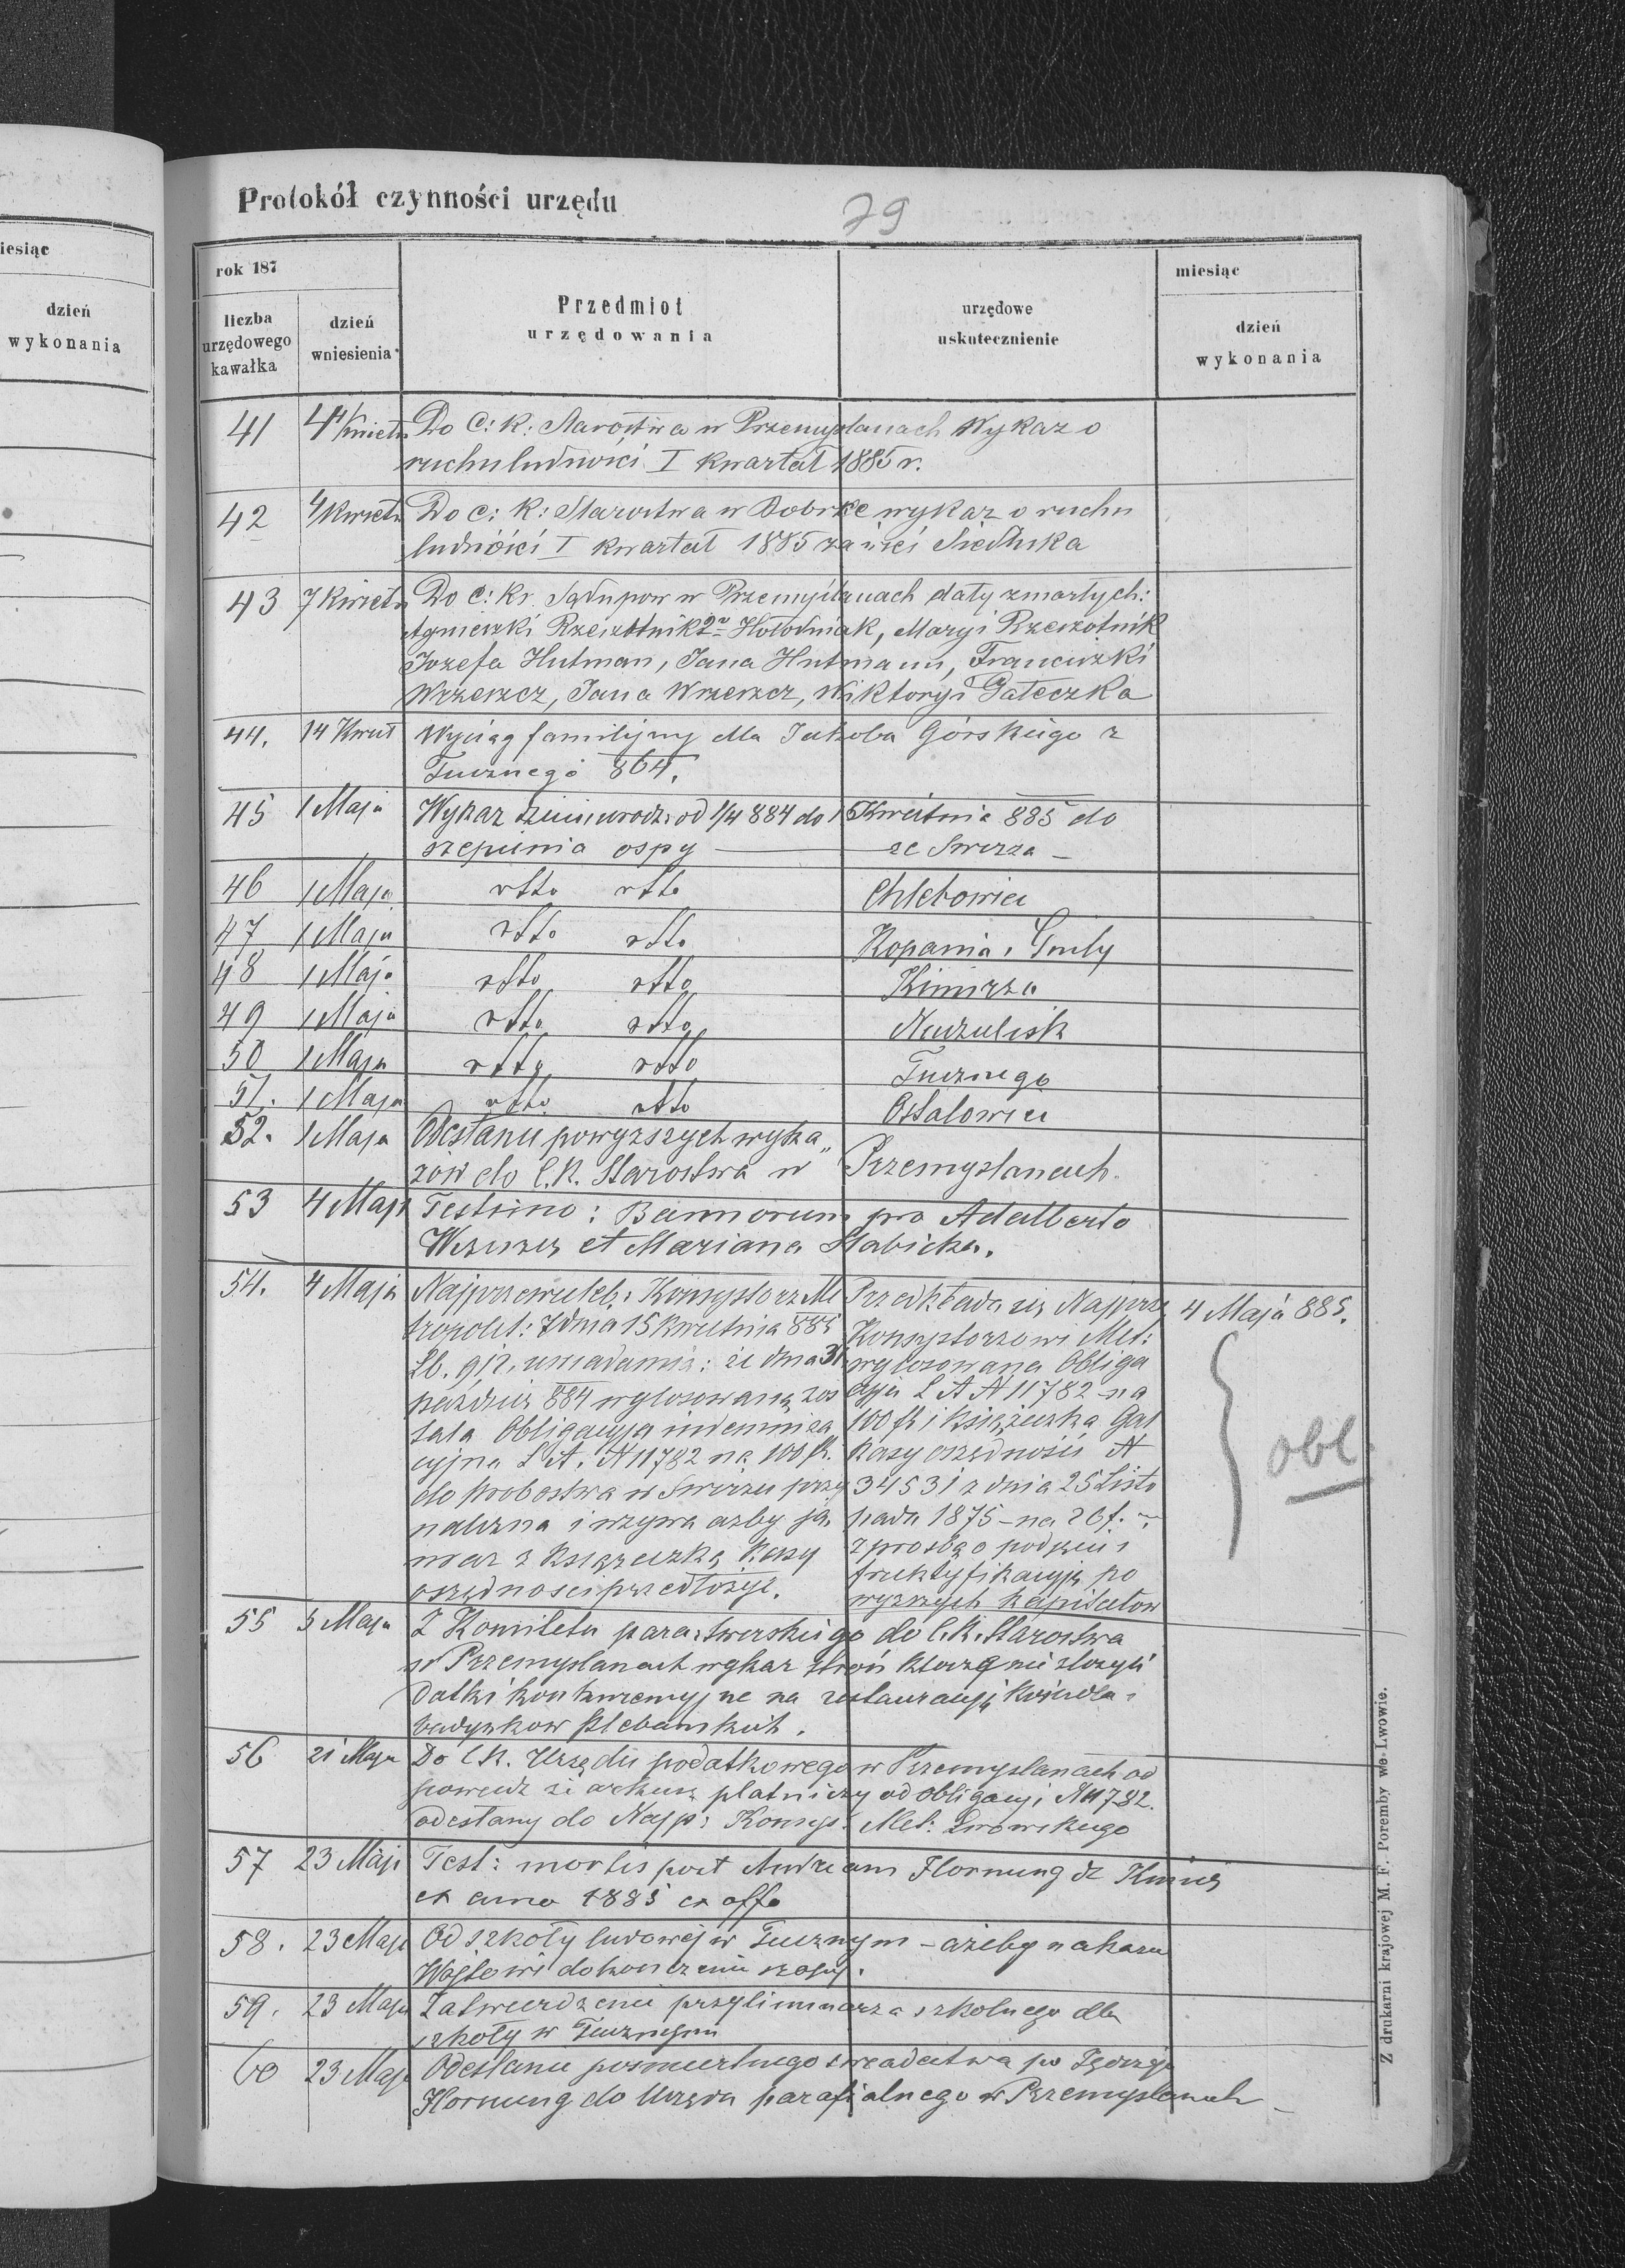 iesiąc
dzień
wykonania
Protokół czynności urzędu
79
rok 187
miesiąc
liczba urzędowego kawałka
dzień wniesienia
Przedmiot urzędowania
urzędowe uskutecznienie
dzień wykonania
41 4/Kwietn Do C: K: Starostwa w Przemyslanach Wykaz o
ruchu ludności I kwartał 1885 r.
42 4/Kwietn Do c: K: Starostwa w Bobrke wykaz o ruchu
ludności I kwartał 1885 za wieś Siedliska
43 7 Kwietn Do C: K: Sądu pow w Przemyślanach daty zmarłych:
Agnieszki Rzeszotnik 2v Hołodniak, Maryi Rzeszotnik
Jozefa Hutman, Jana Hutmann, Franciszki
Wrzeszcz, Jana Wrzeszcz, Wiktoryi Gałeczka
44. 14 Kwiet Wyciąg familijny dla Jakoba Górskiego z
Tucznego 864.
45 1 Maja Wykaz dzieci urodz: od 1/4 884 do 1 Kwietnia 885 do
szepienia ospy — ze Swirza —
46 1 Maja dtto dtto Chlebowice
47 1 Maja dtto dtto Kopania,
48 1 Maja dtto dtto Kimirza
49 1 Maja dtto dtto
50 1 Maja dtto dtto Tucznego
51. 1 Maja dtto dtto Ostalowice
52. 1 Maja Odesłanie powyzszych wyka„
zów do C. K. Starostwa w Przemyslanach.
53 4 Maja Testimo: Bannorum pro Adalberto
et Mariana Słabicka.
54. 4 Maja Konsystorz Me
tropolit: z dnia 15 Kwietnia 885
Lb. uwiadamia: że dnia 31
paździer 884 wylosowaną zos
tala Obligacyja indemniza
cyjna Lit. A N 11782 na 100 fl.
do probostwa w Swirzu przy
należna i wzywa azby ją
wraz z Książeczką Kasy
oszędnosci przedłożyć.
Przedkłada się Najprz
Konsystorzowi Met:
wylosowana Obliga
cyja Lit A N 11782 na
100 fl i książeczką Gal
Kasy oszędnosci N
34531 z dnia 25 Listo
pada 1875 – na 26 f.
z prosbą o
fruktyfikacyję po
wyzszych kapitałow
4 Maja 885.
obl.
55 5 Maja Z Komitetu para: swirskiego do C. K. Starostwa
w Przemyslanach wykaz stron ktorzy nie złozyli
Datki konkurencyjne na restauracyję Kościoła i
budynkow plebanskich.
56 21 Maja Do C K. Urzędu podatkowego w Przemyslanach od
powiedz że arkusz platniczy od obligacyi N 11782.
odesłany do Najp: Konsys: Met: Lwowskiego
57 23 Maja Test: mortis post Andream Hornung de
ex anno 1885 ex offo
58. 23 Maja Od szkoły ludowej w Tucznym – ażeby nakazu
Wojtowi dokonczenie szopy.
59. 23 Maja Zatwierdzenie przyliminarza szkolnego dla
szkoły w Tucznym
60 23 Maja Odesłanie posmiertnego swiadectwa po Jędrzeju
Hornung do Urzędu parafialnego w Przemyslanach
Z drukarni krajowej M. F. Poremby we Lwowie.